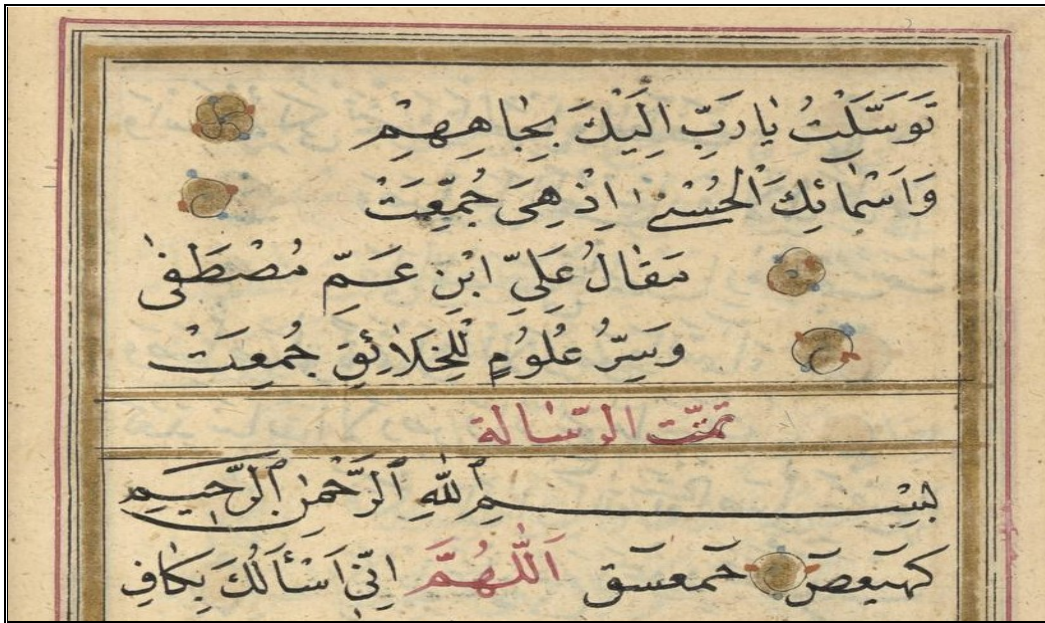 تَوَسَّلْتُ يَا رَبِّ اِلَيْكَ بِجَاهِهِمْ
وَاَسْمَائِكَ الْحُسْنٰى اِذْ هِىَ جُمِّعَتْ
مَقَالُ عَلِيِّ ابْنِ عَمِّ مُصْطَفٰى
وَسِرُّ عُلُوُمٍ لِلْخَلَائِقِ جُمِعَتْ
تمّت الرّسالة
بِسْمِ اللّٰهِ الرَّحْمٰنِ الرَّحِيمِ
كهيعص حمعسق اَللّٰهُمَّ اِنِّي اَسْأَلُكَ بِكَافِ